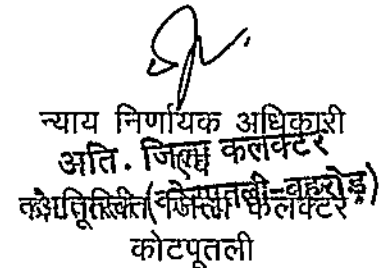 न्याय निर्णायक अधिकारी
अति. जिला कलक्टर
(कोटपूतली-बहरोड़)
जिला कलेक्टर
कोटपूतली